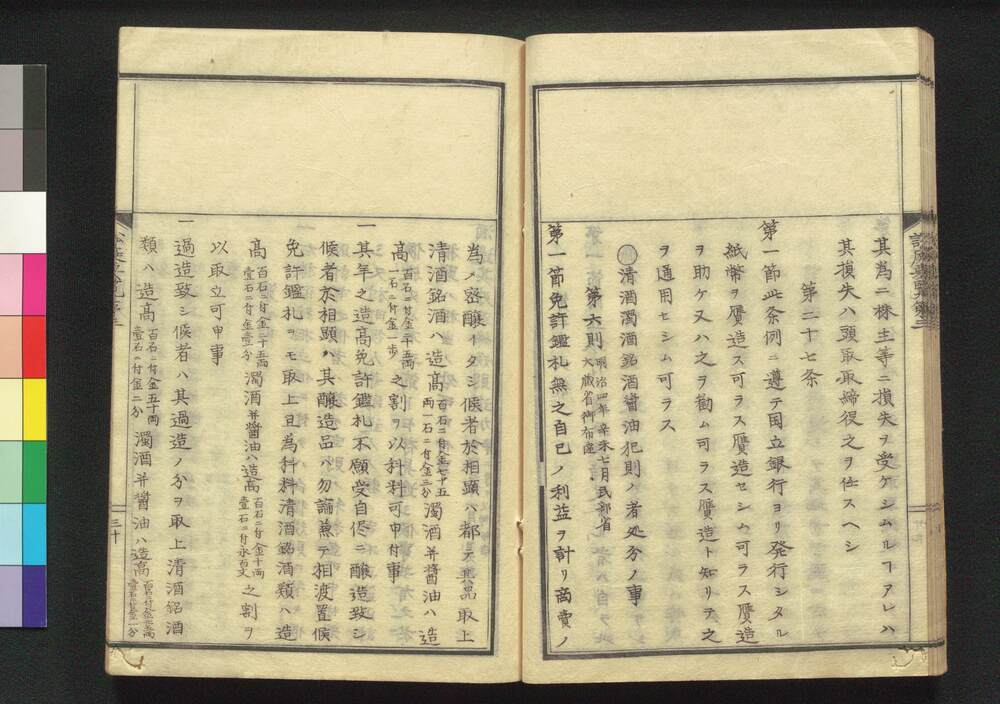 其為ニ株主等ニ損失ヲ受ケシムルヿアレハ
其損失ハ頭取取締役之ヲ任スヘシ
第二十七条
第一節此条例ニ遵テ国立銀行ヨリ発行シタル
紙幣ヲ贋造ス可ラス贋造セシム可ラス贋造
ヲ助ケ又ハ之ヲ勸ム可ラス贋造ト知リテ之
ヲ通用セシム可ラス
◯清酒濁酒銘酒醤油犯則ノ者処分ノ事
第六則 明治四年辛未七月式部省大蔵省御布達
第一節免許鑑札無之自已ノ利益ヲ計リ商賣ノ
為ノ密醸イタシ候者於相顕ハ都テ其品取上
清酒銘酒ハ造高百石ニ付金七十五両一石ニ付金三分濁酒并醤油ハ造
高百石ニ付金二十五両一石ニ付金一歩之割ヲ以科料可申付事
一其年之造高免許鑑札不願受自侭ニ醸造致シ
候者於相顕ハ其醸造品ハ勿論兼テ相渡置候
免許鑑札ヲモ取上且為科料清酒銘酒類ハ造
高百石ニ付金二十五両壹石ニ付金壹分濁酒并醤油ハ造高百石ニ付金十両壹石ニ付永百文之割ヲ
以取立可申事
一過造致シ候者ハ其過造ノ分ヲ取上清酒銘酒
類ハ造高百石ニ付金五十両壹石ニ付金二分濁酒并醤油ハ造高百石ニ付金弐十五両壹石ニ付金一分
三十